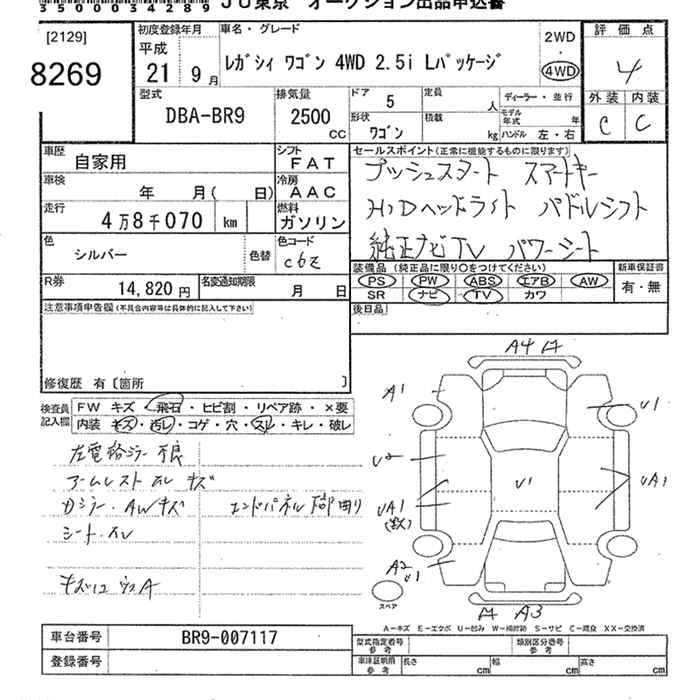 35000034289 JU東京 オークション出品申込書
[2129]
8269
初度登録年月
平成
21 9月
車名・グレード
レガシィ ワゴン 4WD 2.5i Lパッケージ
2WD
・
4WD
評価点
4
外装 内装
C C
型式
DBA-BR9
排気量
2500
CC
ドア 5
定員 人
形状 ワゴン
積載 kg
ディーラー・並行
モデル年式 年
ハンドル 左・右
車歴 自家用
シフト FAT
車検 年 月( 日)
冷房 AAC
走行 4万8千070 km
燃料 ガソリン
色 シルバー
色替
色コード
C6Z
R券 14,820 円
名変通知期限 月 日
セールスポイント(正常に機能するものに限ります)
プッシュスタート スマートキー
HIDヘッドライト パドルシフト
純正ナビTV パワーシート
装備品 (純正品に限り○をつけてください)
PS PW ABS エアB AW
SR ナビ TV カワ
新車保証書
有・無
後日品
注意事項申告欄(不具合内容等は具体的に記入して下さい)
修復歴 有〔箇所 〕
検査員記入欄
FW キズ・飛石・ヒビ割・リペア跡・×要
内装 キズ・汚レ・コゲ・穴・スレ・キレ・破レ
左電格ミラー不良
アームレスト スレ キズ
カラー・AWキズ エンドパネル 曲り
シート スレ
A4
A1
U1
U2
U1
UA1
UA1
A2
U1
A3
スペア
A-キズ E-エクボ U-凹み W-補修跡 S-サビ C-腐食 XX-交換済
車台番号 BR9-007117
登録番号
型式指定番号
参考
類別区分番号
参考
車庫証明用
参考
長さ cm 幅 cm 高さ cm